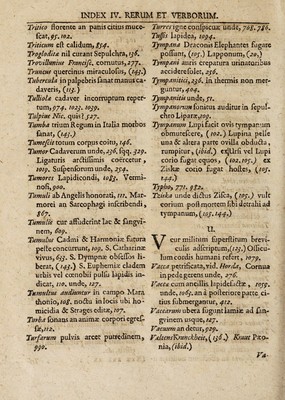 INDEX IV. RERUM ET VERBORUM.
Tritico florente an panis citius muce-
scat, 95. 102.
Triticum est calidum, 854.
Troglodita nil curant Sepulchra, 136.
Trovillantus Francisc. cornutus, 277.
Truncus quercinus miraculosus, (145.)
Tuberculo in palpebris sanat manus ca-
daveris, (113.)
Tulliolæ cadaver incorruptum reper-
tum, 974. 1023. 1039.
Tulpius Nic. quis! 327.
Tumba trium Regum in Italia morbos
sanat, (145.)
Tumescit totum corpus coito, 146.
Tumor Cadaverum unde, 236. sqq. 329.
Ligaturis arctissimis coërcetur,
109. Suspensorum unde, 254.
Tumores Lapidiscendi, 1183. Vermi-
nosi, 900.
Tumuli ab Angelis honorati, 111. Mar-
morei an Sarcophagi inscribendi,
867.
Tumulis cur affuiderint lac & sangvi-
nem, 609.
Tumulus Cadmi & Harmoniæ futura
peste concutitur, 109. S. Catharinæ
vivus, 623. S. Dympnæ obsessos li-
berat, (143.) S. Euphemiæ cladem
urbis vel cœmobii pusilla lapidis in-
dicat, 110. unde, 127.
Tumultus audiuntur in campo Mara
thonio, 108. noctu in locis ubi ho-
micidia & Strages editæ, 107.
Turba sonans an animæ corpori egres-
sæ, 112.
Turfarum pulvis arcet putredinem,
990.
Turres igne conspicuæ unde, 705. 786.
Tussis lapidea, 1094.
Tympana Draconis Elephantes fugare
possunt, (103.) Lapponum, (20.)
Tympani auris crepatura urinatoribus
accideresolet, 236.
Tympanitici, 236. in thermis non mer-
guntur, 404.
Tympanitis unde, 51.
Tympanorum sonitus auditur in sepul-
chro Liparæ, 109.
Tympanum ex pelle ovis tympanum
obmutescere, (102.) Lupina pelle
una & altera parte ovilla obducta,
rumpitur, (ibid.) explisi vel lupi
corio fugat equos, (102. 105.) ex
Ziskæ corio fugat hostes, (105.
144.)
Typho, 771. 982.
Ziska unde dictus Zisca, (105.) vult
corium post mortem sibi detrahi ad
tympanum, (105. 144.)
U.
Veur militum superstitum brevi-
culis adscriptum, (132.) Osseicu-
lum cordis humani refert, 1079.
Vacca petrificata, vid. Horda, Cornua
in pede gerent unde, 276.
Vacca cum ancillis lapidefactæ, 1059.
unde, 1065. an à posteriore parte ci-
tius submergantur, 412.
Vaccarum ubera fugunt lamiæ ad san-
gvinem usque, 127.
Vacuum an detur, 929.
Valtem Kranckheit, (136.) Knaut Pæo-
nia, (ibid.)
Va-